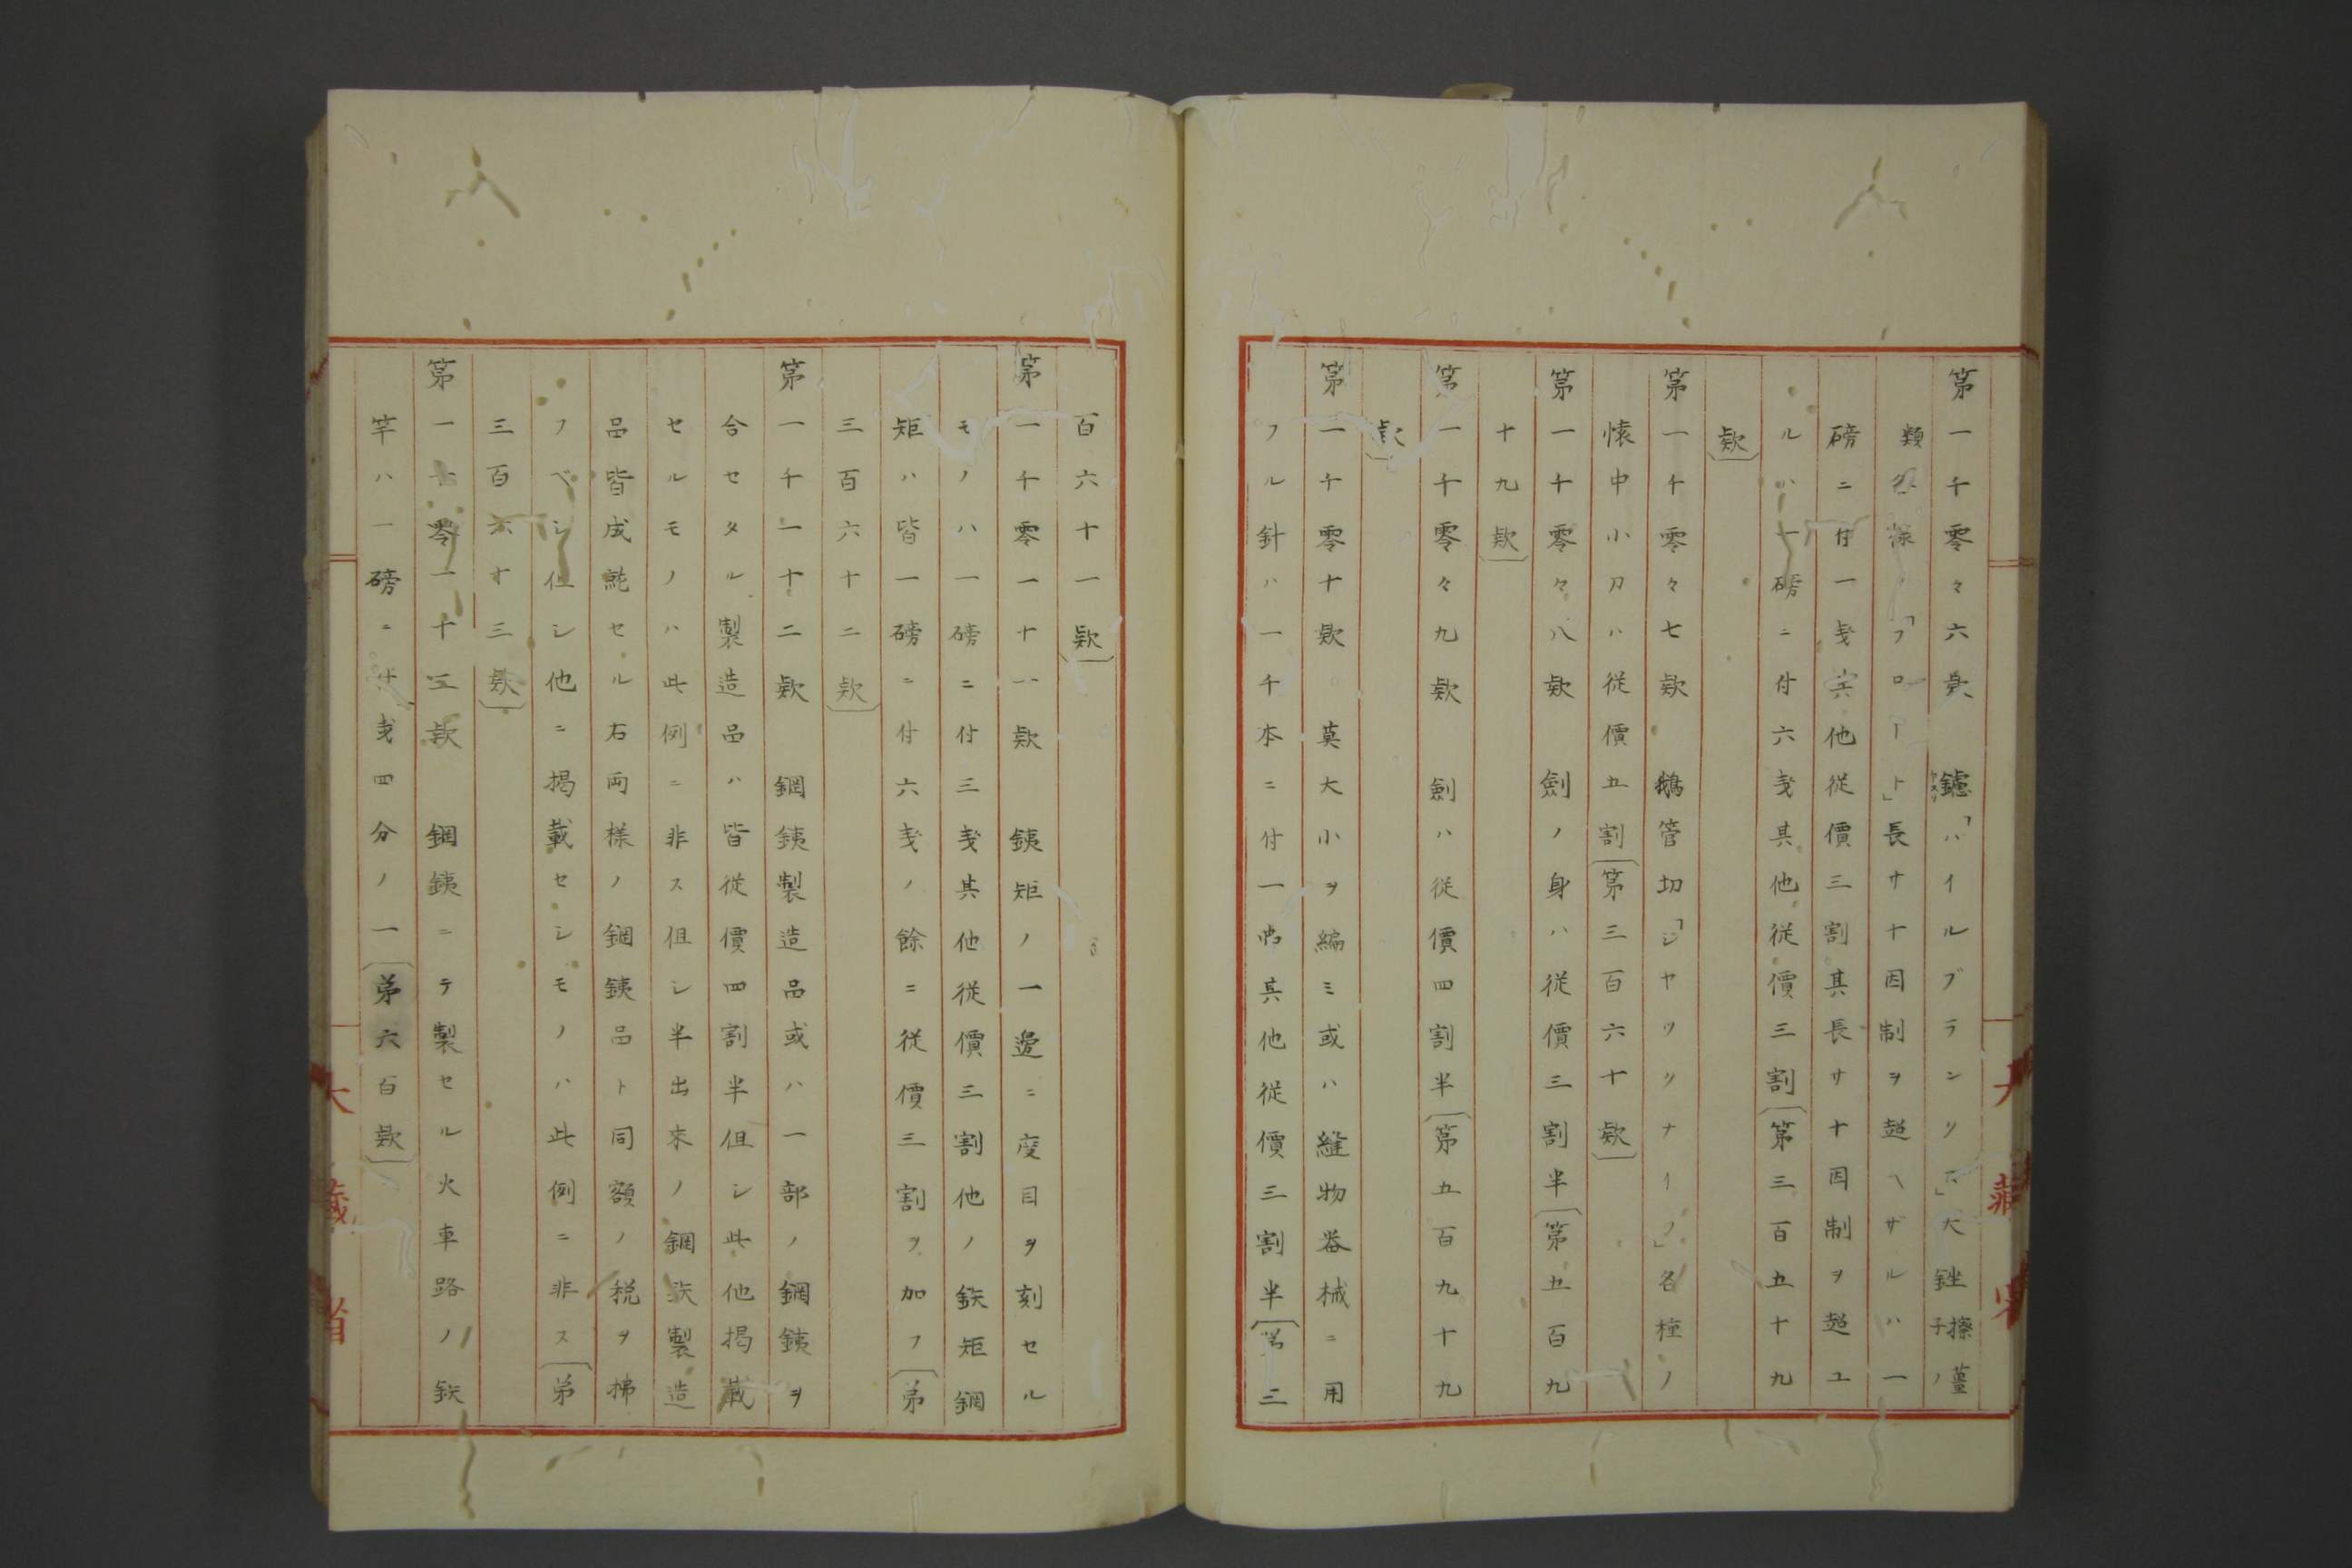 第一千零々六欵　鑢「ハイルブラシリス」大銼擦薑子ノ
類各様ノ「フロート」長サ十因制ヲ超ヘザルハ一
磅ニ付一戔其他従價三割其長サ十因制ヲ超ユ
ルハ一磅ニ付六戔其他従價三割〔第三百五十九
欵〕
第一千零々七欵　鵝管切「シヤツクナイフ」各種ノ
懐中小刀ハ従價五割〔第三百六十欵〕
第一千零々八欵　劍ノ身ハ従價三割半〔第五百九
十九欵〕
第一千零々九欵　劍ハ従價四割半〔第五百九十九
欵〕
第一千零十欵　莫大小ヲ編ミ或ハ縫物器械ニ用
フル針ハ一千本ニ付一弗其他従價三割半〔第三
百六十一欵〕
第一千零一十一欵　銕矩ノ一邊ニ度目ヲ刻セル
モノハ一磅ニ付三戔其他従價三割他ノ鉄矩鋼
矩ハ皆一磅ニ付六戔ノ餘ニ従價三割ヲ加フ〔第
三百六十二欵〕
第一千一十二欵　鋼銕製造品或ハ一部ノ鋼銕ヲ
合セタル製造品ハ皆従價四割半但シ此他掲載
セルモノハ此例ニ非ス但シ半出来ノ鋼鉄製造
品皆成就セル右両様ノ鋼銕品ト同額ノ税ヲ拂
フベシ但シ他ニ掲載セシモノハ此例ニ非ス〔第
三百六十三欵〕
第一千零一十三欵　鋼銕ニテ製セル火車路ノ鉄
竿ハ一磅ニ付戔四分ノ一〔第六百欵〕
大藏省